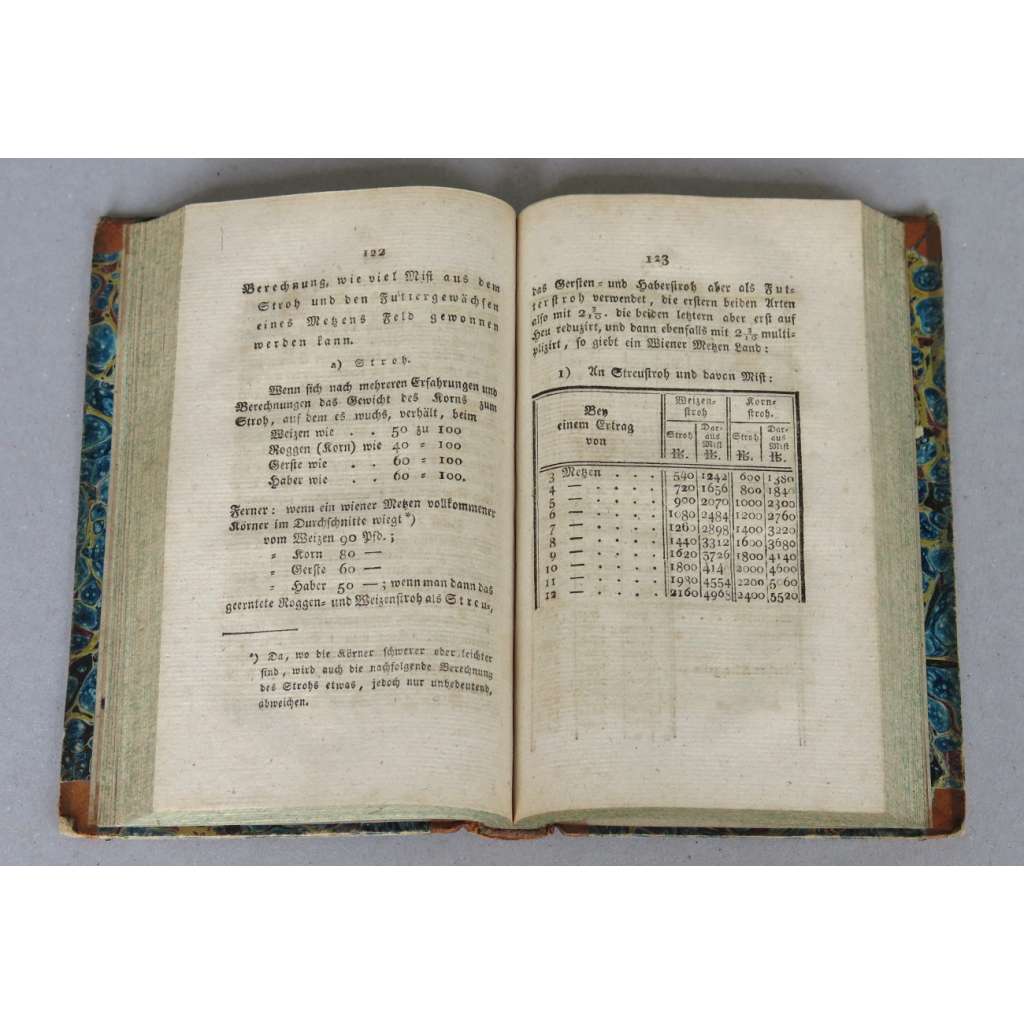 122
Berechnung, wie viel Mist aus dem
Stroh und den Futtergewächsen
eines Metzens Feld gewonnen
werden kann.
a) Stroh.
Wenn sich nach mehreren Erfahrungen und
Berechnungen das Gewicht des Korns zum
Stroh, auf dem es wuchs, verhält, beym
Weizen wie . . 50 zu 100
Roggen (Korn) wie 40 = 100
Gerste wie . . 60 = 100
Haber wie . . 60 = 100.
Ferner: wenn ein wiener Metzen vollkommener
Körner im Durchschnitte wiegt *)
vom Weizen 90 Pfd.;
= Korn 80 —
= Gerste 60 —
= Haber 50 —; wenn man dann das
geerntete Roggen- und Weizenstroh als Streu-,
*) Da, wo die Körner schwerer oder leichter
sind, wird auch die nachfolgende Berechnung
des Strohs etwas, jedoch nur unbedeutend,
abweichen.
123
das Gersten- und Haberstroh aber als Fut-
terstroh verwendet, die erstern beiden Arten
also mit 2 3/10. die beiden letztern aber erst auf
Heu reduzirt, und dann ebenfalls mit 2 3/10 multi-
plizirt, so giebt ein Wiener Metzen Land:
1) An Streustroh und davon Mist:
Bey einem Ertrag von | Weizen-stroh | Korn-stroh.
Stroh ℔. | Dar-aus Mist ℔. | Stroh ℔. | Dar-aus Mist ℔.
3 Metzen . . . | 540 | 1242 | 600 | 1380
4 — . . . . | 720 | 1656 | 800 | 1840
5 — . . . . | 900 | 2070 | 1000 | 2300
6 — . . . . | 1080 | 2484 | 1200 | 2760
7 — . . . . | 1260 | 2898 | 1400 | 3220
8 — . . . . | 1440 | 3312 | 1600 | 3680
9 — . . . . | 1620 | 3726 | 1800 | 4140
10 — . . . . | 1800 | 4140 | 2000 | 4600
11 — . . . . | 1980 | 4554 | 2200 | 5060
12 — . . . . | 2160 | 4968 | 2400 | 5520